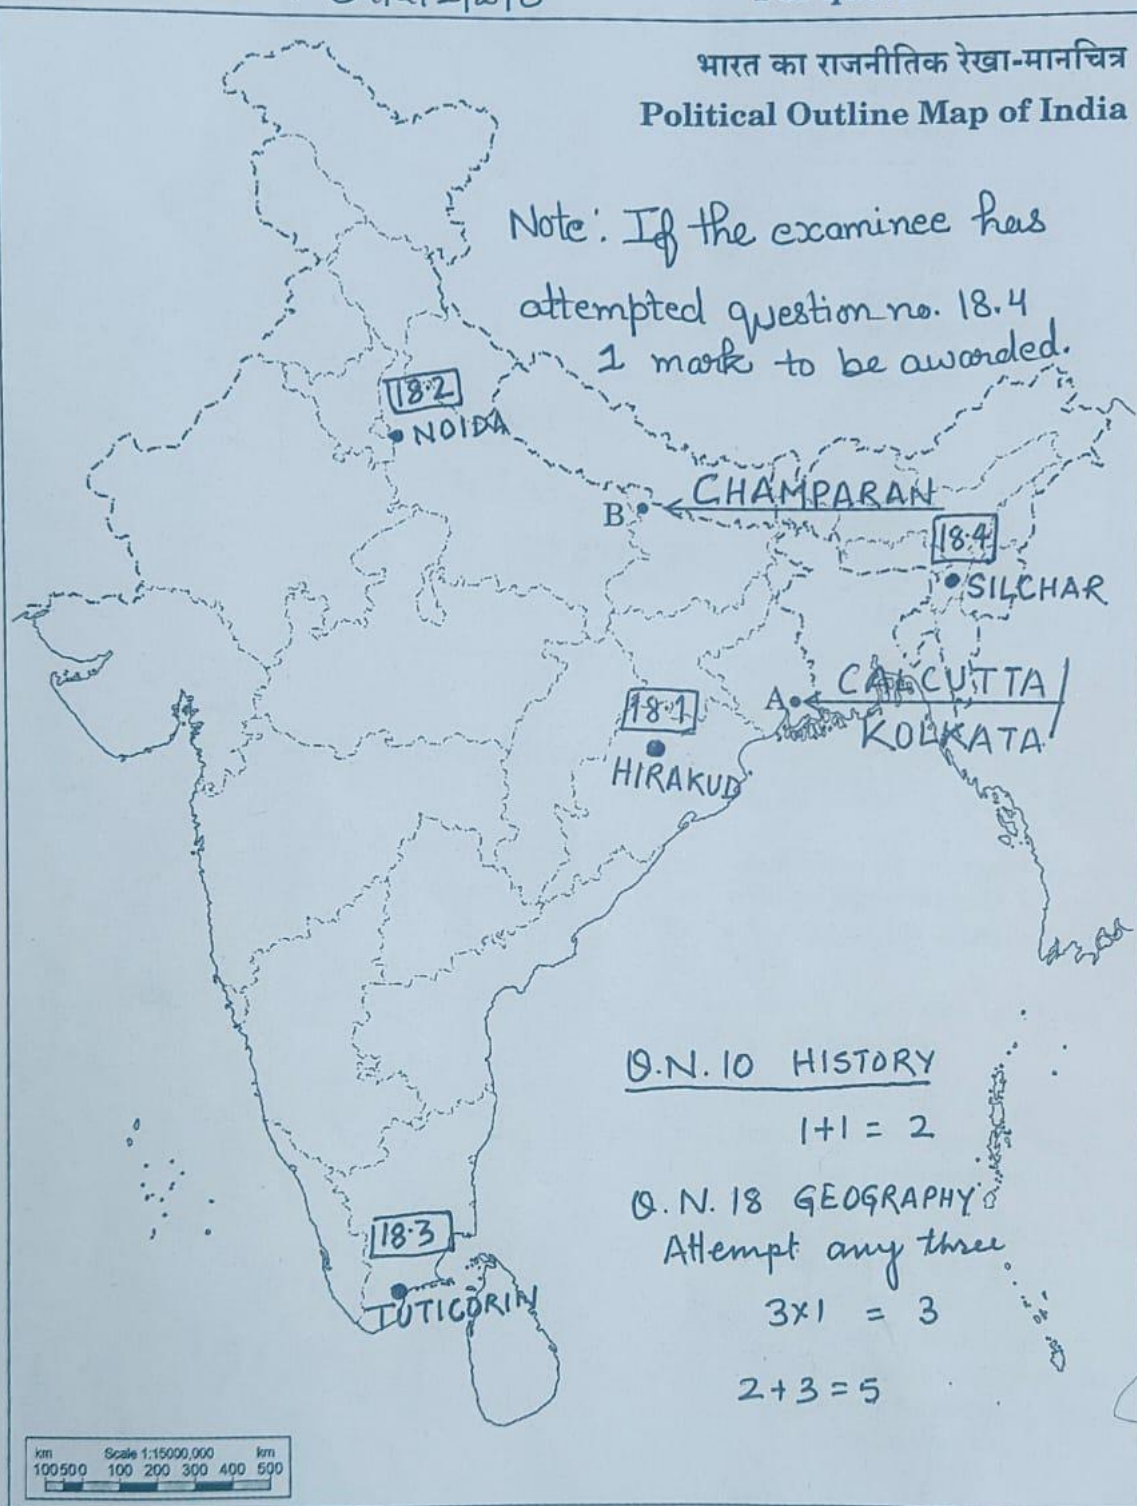 भारत का राजनीतिक रेखा-मानचित्र
Political Outline Map of India
Note: If the examinee has
attempted question no. 18.4
1 mark to be awarded.
18.2
NOIDA
CHAMPARAN
B
18.4
SILCHAR
CALCUTTA/
A
KOLKATA
18.1
HIRAKUD
Q.N. 10 HISTORY
1+1 = 2
Q.N. 18 GEOGRAPHY
Attempt any three
18.3
TUTICORIN
3×1 = 3
2+3=5
km Scale 1:15000,000 km
100 50 0 100 200 300 400 500